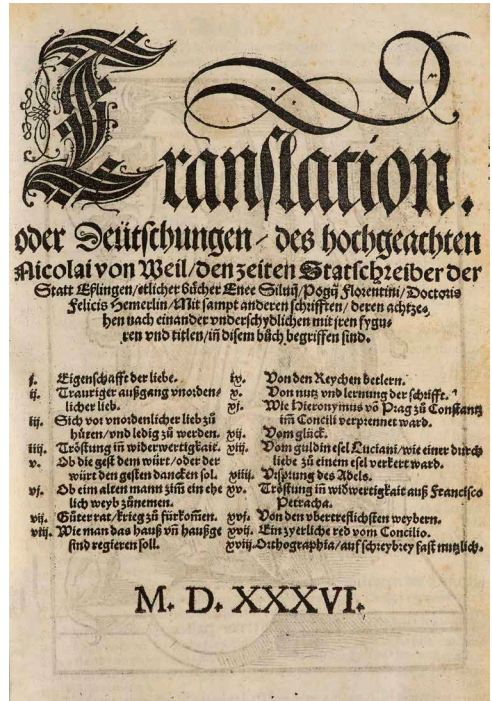 Translation.
oder Deütschungen / des hochgeachten
Nicolai von Weil / den zeiten Statschreiber der
Statt Eßlingen / etlicher bücher Enee Siluij / Pogij Florentini / Doctoris
Felicis Hemerlin / Mit sampt anderen schrifften / deren achtze⸗
hen nach einander vnderschydlichen mit jren fygu⸗
ren vnd titlen / iñ disem bůch begriffen sind.
j. Eigenschafft der liebe.
ij. Trauriger außgang vnorden⸗
licher lieb.
iij. Sich vor vnordenlicher lieb zů
hüten / vnd ledig zů werden.
iiij. Tröstung iñ widerwertigkait.
v. Ob die gest dem würt / oder der
würt den gesten dancken sol.
vj. Ob eim alten mann zim ein ehe
lich weyb zůnemen.
vij. Gůter rat / krieg zů fürkom̃en.
viij. Wie man das hauß vñ haußge
sind regieren soll.
ix. Von den Reychen betlern.
x. Von nutz vnd lernung der schrifft.
xj. Wie Hieronymus võ Prag zů Constantz
im̃ Concili verprennet ward.
xij. Vom glück.
xiij. Vom guldin esel Luciani / wie einer durch
liebe zů einem esel verkert ward.
xiiij. Vrsprung des Adels.
xv. Tröstung iñ widwertigkait auß Francisco
Petracha.
xvj. Von den vbertreflichsten weybern.
xvij. Ein zyerliche red vom Concilio.
xviij. Orthographia / auf schreybrey fast nutzlich.
M. D. XXXVI.